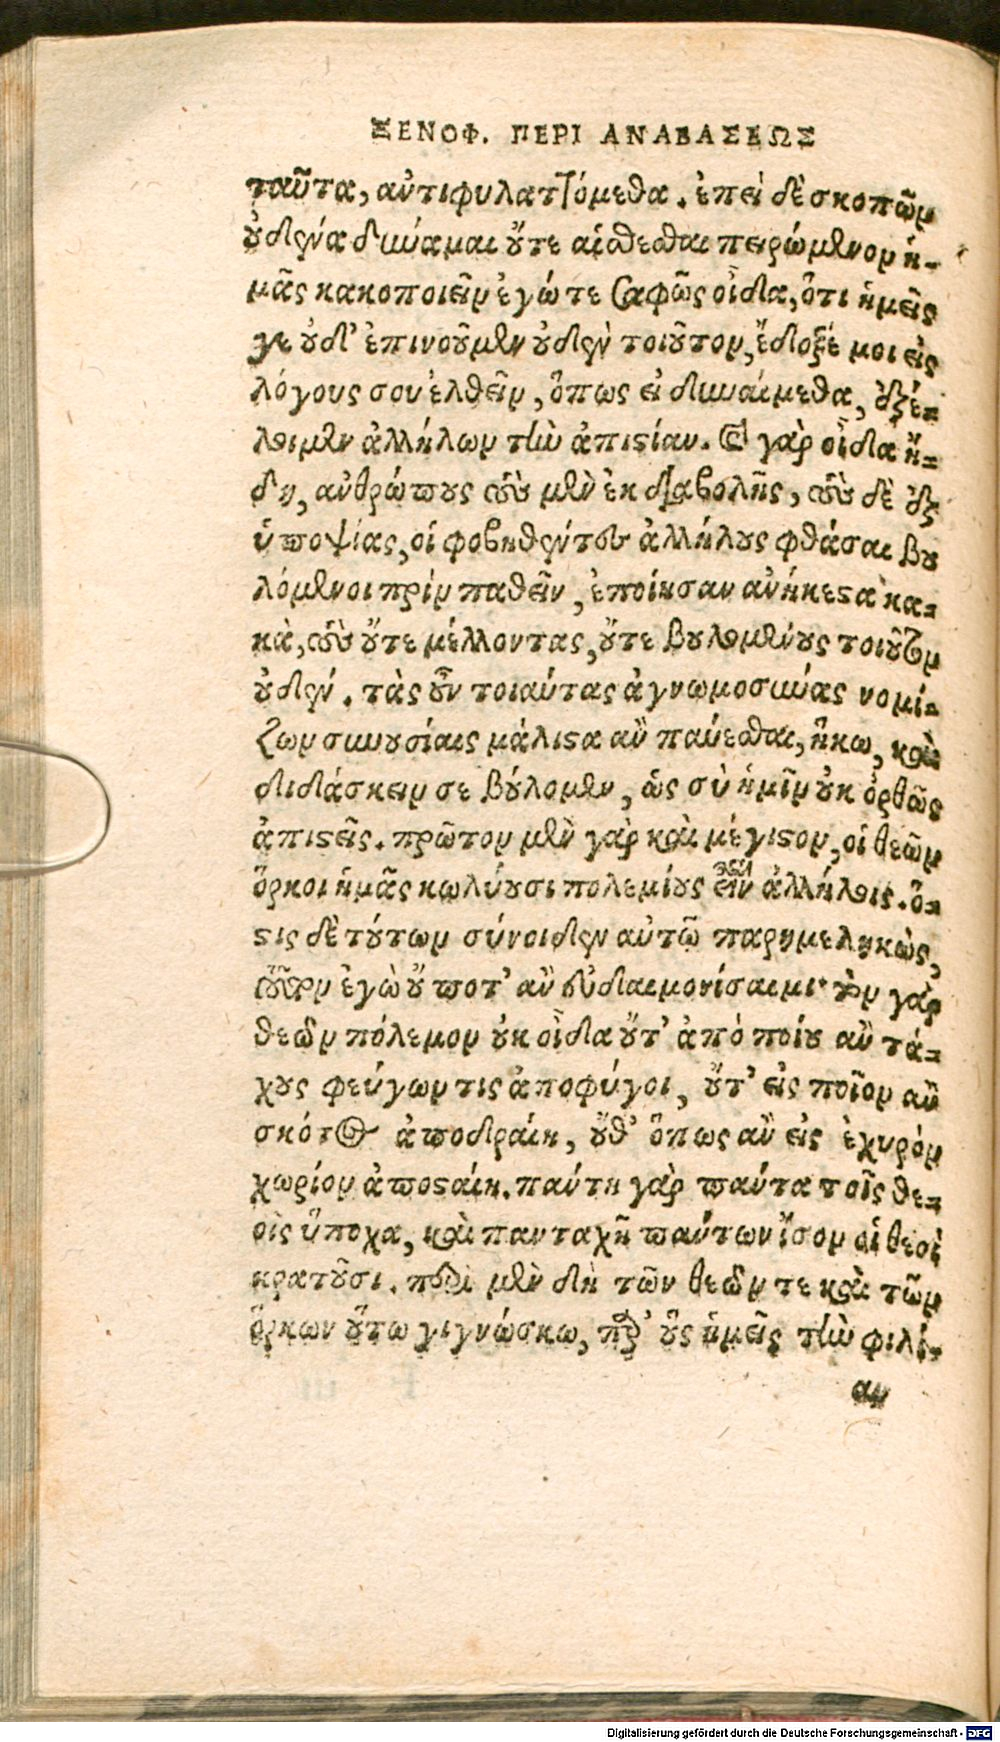 ΞΕΝΟΦ. ΠΕΡΙ ΑΝΑΒΑΣΕΩΣ
ταῦτα, ἀντιφυλαττόμεθα. ἐπεὶ δὲ σκοπῶν
οὐδένα δύναμαι οὔτε αἰσθέσθαι πειρώμενον ἡ-
μᾶς κακοποιεῖν ἐγώ τε σαφῶς οἶδα, ὅτι ἡμεῖς
γε οὐδ' ἐπινοοῦμεν οὐδὲν τοιοῦτον, ἔδοξέ μοι εἰς
λόγους σου ἐλθεῖν, ὅπως εἰ δυναίμεθα, ἐξέ-
λοιμεν ἀλλήλων τὴν ἀπιστίαν. καὶ γὰρ οἶδα ἤ-
δη, ἀνθρώπους τοὺς μὲν ἐκ διαβολῆς, τοὺς δὲ ἐξ
ὑποψίας, οἳ φοβηθέντες ἀλλήλους φθάσαι βου
λόμενοι πρὶν παθεῖν, ἐποίησαν ἀνήκεστα κα-
κὰ, τοὺς οὔτε μέλλοντας, οὔτε βουλομένους τοιοῦτον
οὐδέν. τὰς οὖν τοιαύτας ἀγνωμοσύνας νομί-
ζων συνουσίαις μάλιστα ἂν παύεσθαι, ἥκω, καὶ
διδάσκειν σε βούλομεν, ὡς σὺ ἡμῖν οὐκ ὀρθῶς
ἀπιστεῖς. πρῶτον μὲν γὰρ καὶ μέγιστον, οἱ θεῶν
ὅρκοι ἡμᾶς κωλύουσι πολεμίους εἶναι ἀλλήλοις. ὅ-
στις δὲ τούτων σύνοιδεν αὑτῷ παρημεληκὼς,
τοῦτον ἐγὼ οὔ ποτ' ἂν εὐδαιμονίσαιμι· τὸν γὰρ
θεῶν πόλεμον οὐκ οἶδα οὔτ' ἀπὸ ποίου ἂν τά-
χους φεύγων τις ἀποφύγοι, οὔτ' εἰς ποῖον ἂν
σκότος ἀποδραίη, οὔθ' ὅπως ἂν εἰς ἐχυρὸν
χωρίον ἀποσταίη. πάντη γὰρ πάντα τοῖς θε-
οῖς ὕποχα, καὶ πανταχῆ πάντων ἴσον οἱ θεοὶ
κρατοῦσι. περὶ μὲν δὴ τῶν θεῶν τε καὶ τῶν
ὅρκων οὕτω γιγνώσκω, παρ' οὓς ἡμεῖς τὴν φιλί-
αν
Digitalisierung gefördert durch die Deutsche Forschungsgemeinschaft - DFG